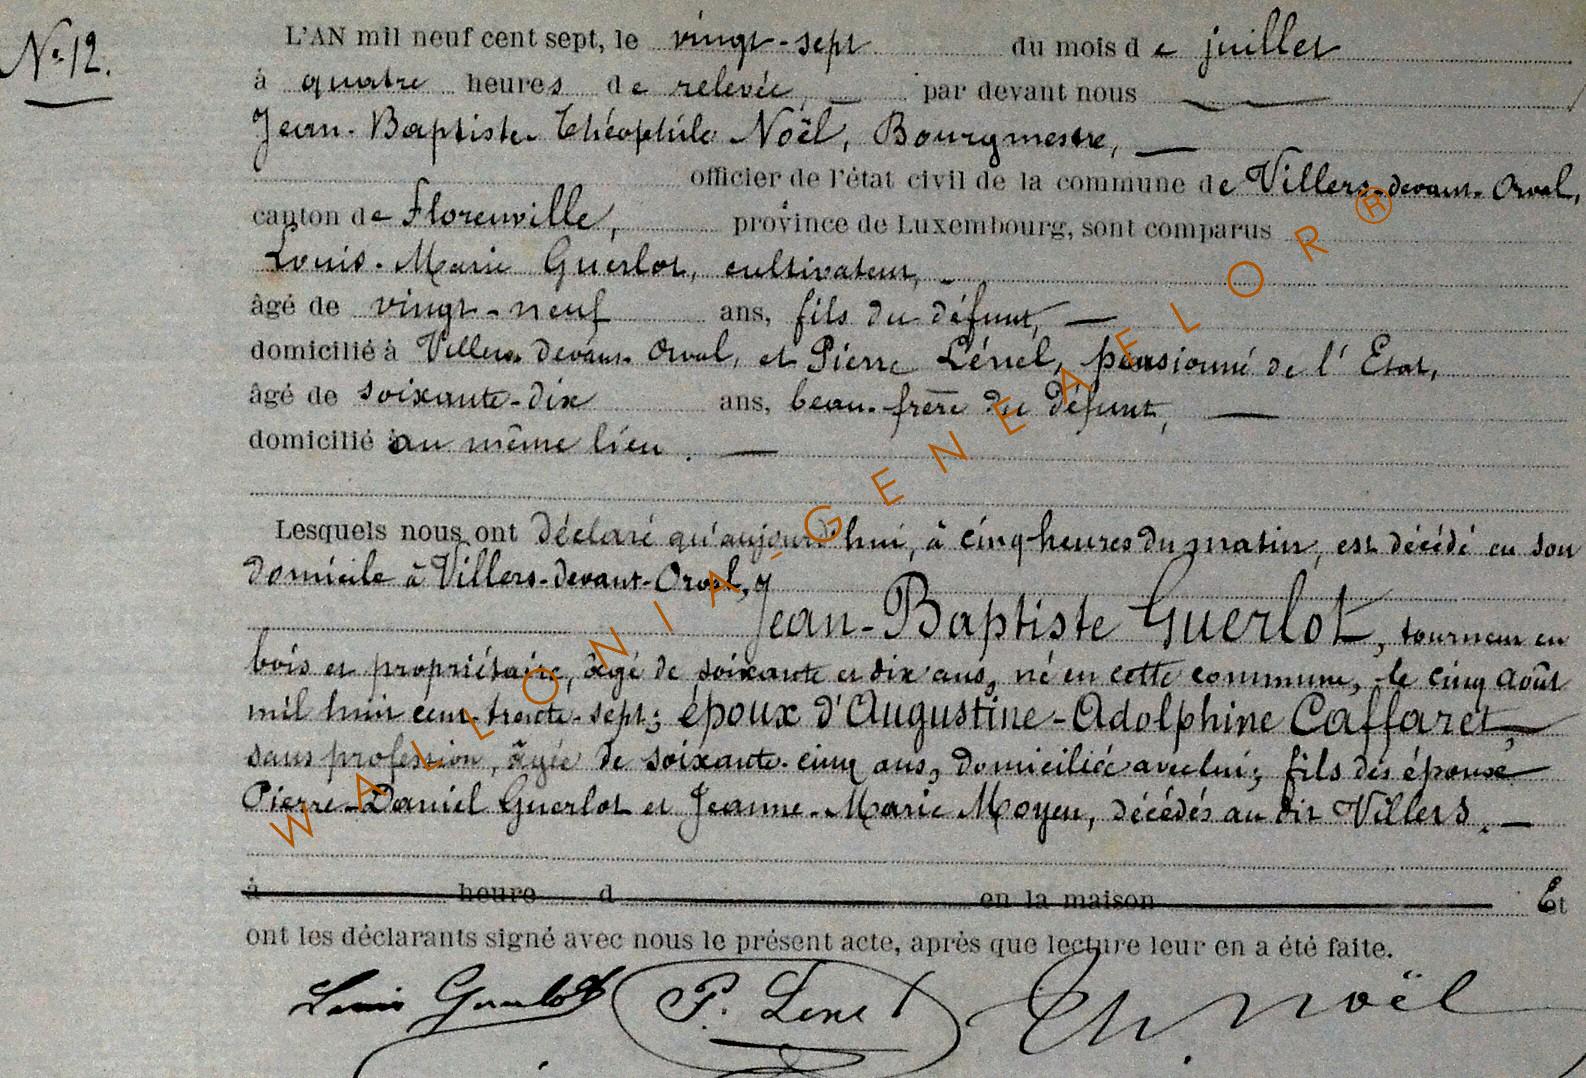 N° 12.
L'AN mil neuf cent sept, le vingt-sept du mois de juillet
à quatre heures de relevée, par devant nous
Jean-Baptiste-Théophile Noël, Bourgmestre,
officier de l'état civil de la commune de Villers-devant-Orval,
canton de Florenville, province de Luxembourg, sont comparus
Louis-Marie Guerlot, cultivateur,
âgé de vingt-neuf ans, fils du défunt,
domicilié à Villers-devant-Orval, et Pierre Lénel, pensionné de l'Etat,
âgé de soixante-dix ans, beau-frère du défunt,
domicilié au même lieu.
Lesquels nous ont déclaré qu'aujourd'hui, à cinq heures du matin, est décédé en son
domicile à Villers-devant-Orval,
Jean-Baptiste Guerlot, tourneur en
bois et propriétaire, âgé de soixante et dix ans, né en cette commune, le cinq août
mil huit cent trente-sept; époux d'Augustine-Adolphine Caffaret,
sans profession, âgée de soixante-cinq ans, domiciliée avec lui; fils des époux
Pierre-Daniel Guerlot et Jeanne-Marie Moyen, décédés au dit Villers.
à heure d en la maison Et
ont les déclarants signé avec nous le présent acte, après que lecture leur en a été faite.
Louis Guerlot P. Lenel Th. Noël
WALLONIA-GENEAFLOR®